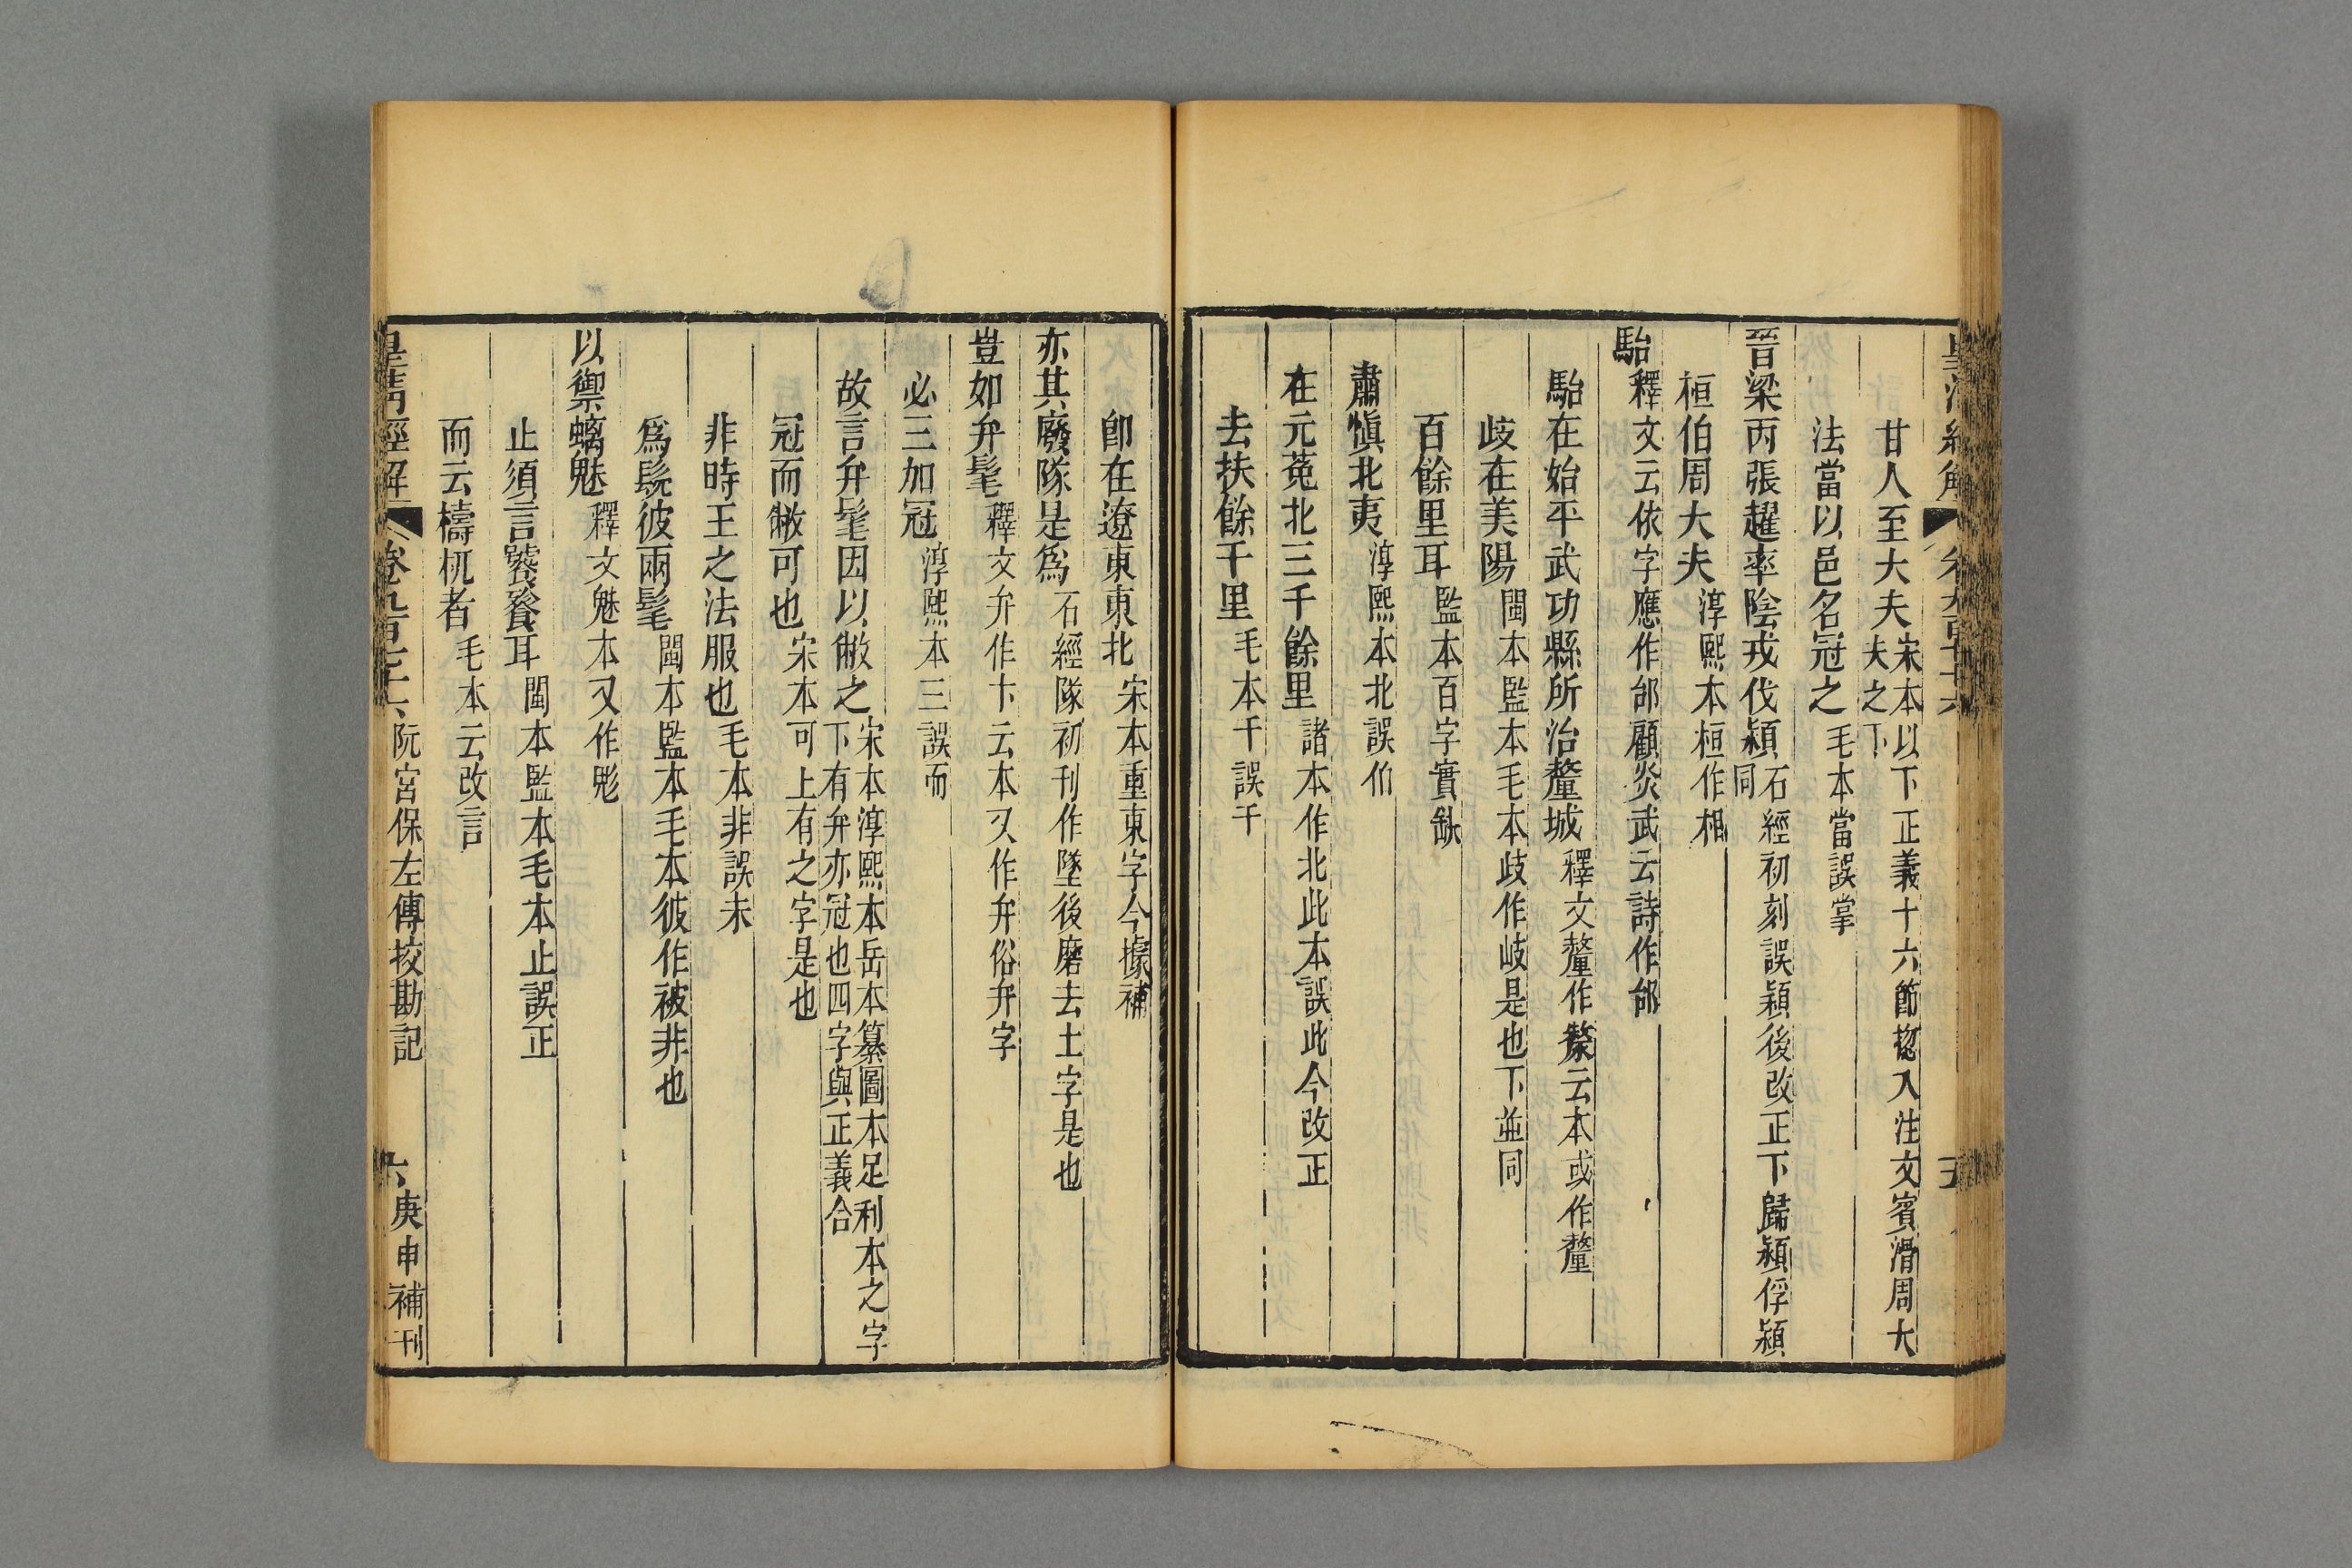 甘人至大夫宋本以下正義十六節揔入注文賓滑周大夫之下
法當以邑名冠之毛本當誤掌
晉梁丙張趯率陰戎伐潁石經初刻誤穎後改正下歸潁俘潁同
桓伯周大夫淳熙本桓作相
駘釋文云依字應作邰顧炎武云詩作邰
駘在始平武功縣所治釐城釋文釐作斄云本或作釐
岐在美陽閩本監本毛本歧作岐是也下並同
百餘里耳監本百字實缺
肅愼北夷淳熙本北誤伯
在元菟北三千餘里諸本作北此本誤此今改正
去扶餘千里毛本千誤干
卽在遼東東北宋本重東字今據補
亦其廢隊是爲石經隊初刊作墜後磨去土字是也
豈如弁髦釋文弁作卞云本又作弁俗弁字
必三加冠淳熙本三誤而
故言弁髦因以敝之宋本淳熙本岳本纂圖本足利本之字下有弁亦冠也四字與正義合
冠而敝可也宋本可上有之字是也
非時王之法服也毛本非誤未
爲髧彼兩髦閩本監本毛本彼作被非也
以禦螭魅釋文魅本又作鬽
止須言饕餮耳閩本監本毛本止誤正
而云檮杌者毛本云改言
皇清經解 卷九百五十六 阮宮保左傳挍勘記 六 庚申補刊